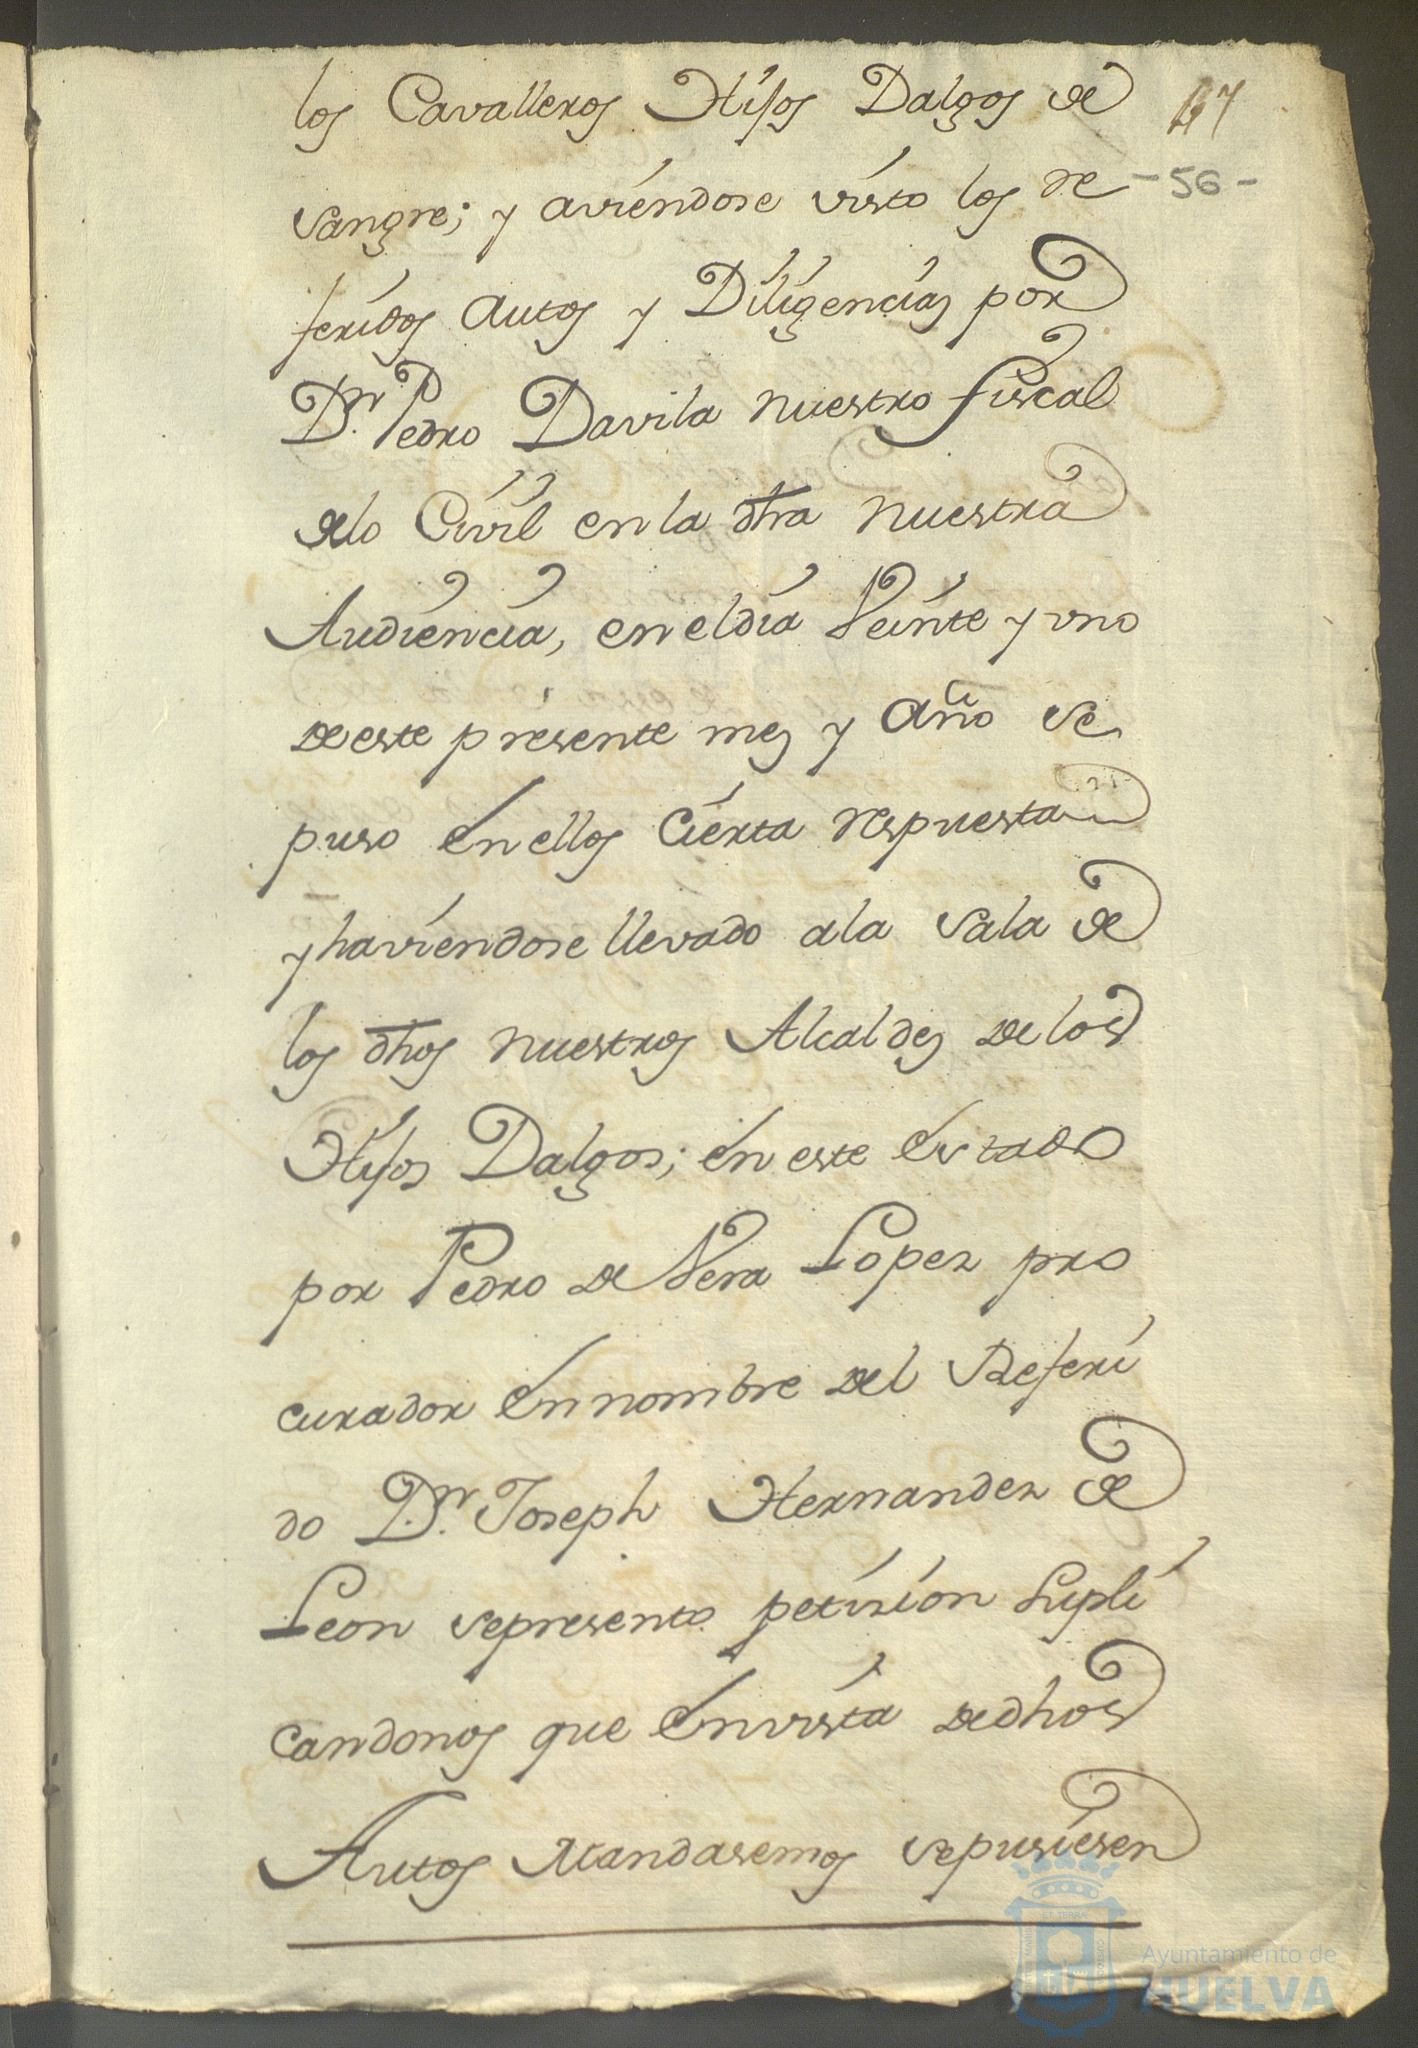 los Cavalleros Hijos Dalgos de
sangre; y aviendose visto los re
feridos autos y Diligencias por
Dn. Pedro Davila nuestro fiscal
delo Civil en la dha nuestra
Audiencia, en el dia Veinte y uno
de este presente mes y año se
puso en ellos cierta respuesta
y haviendose llevado a la sala de
los dhos nuestros Alcaldes de los
Hijos Dalgos; en este estado
por Pedro de Vera Lopez pro
curador en nombre del Referi
do Dn. Joseph Hernandez de
Leon se presento petizion supli
candonos que en vista de dhos
Autos Mandasemos se pusiesen
- 56 -
Ayuntamiento de
HUELVA